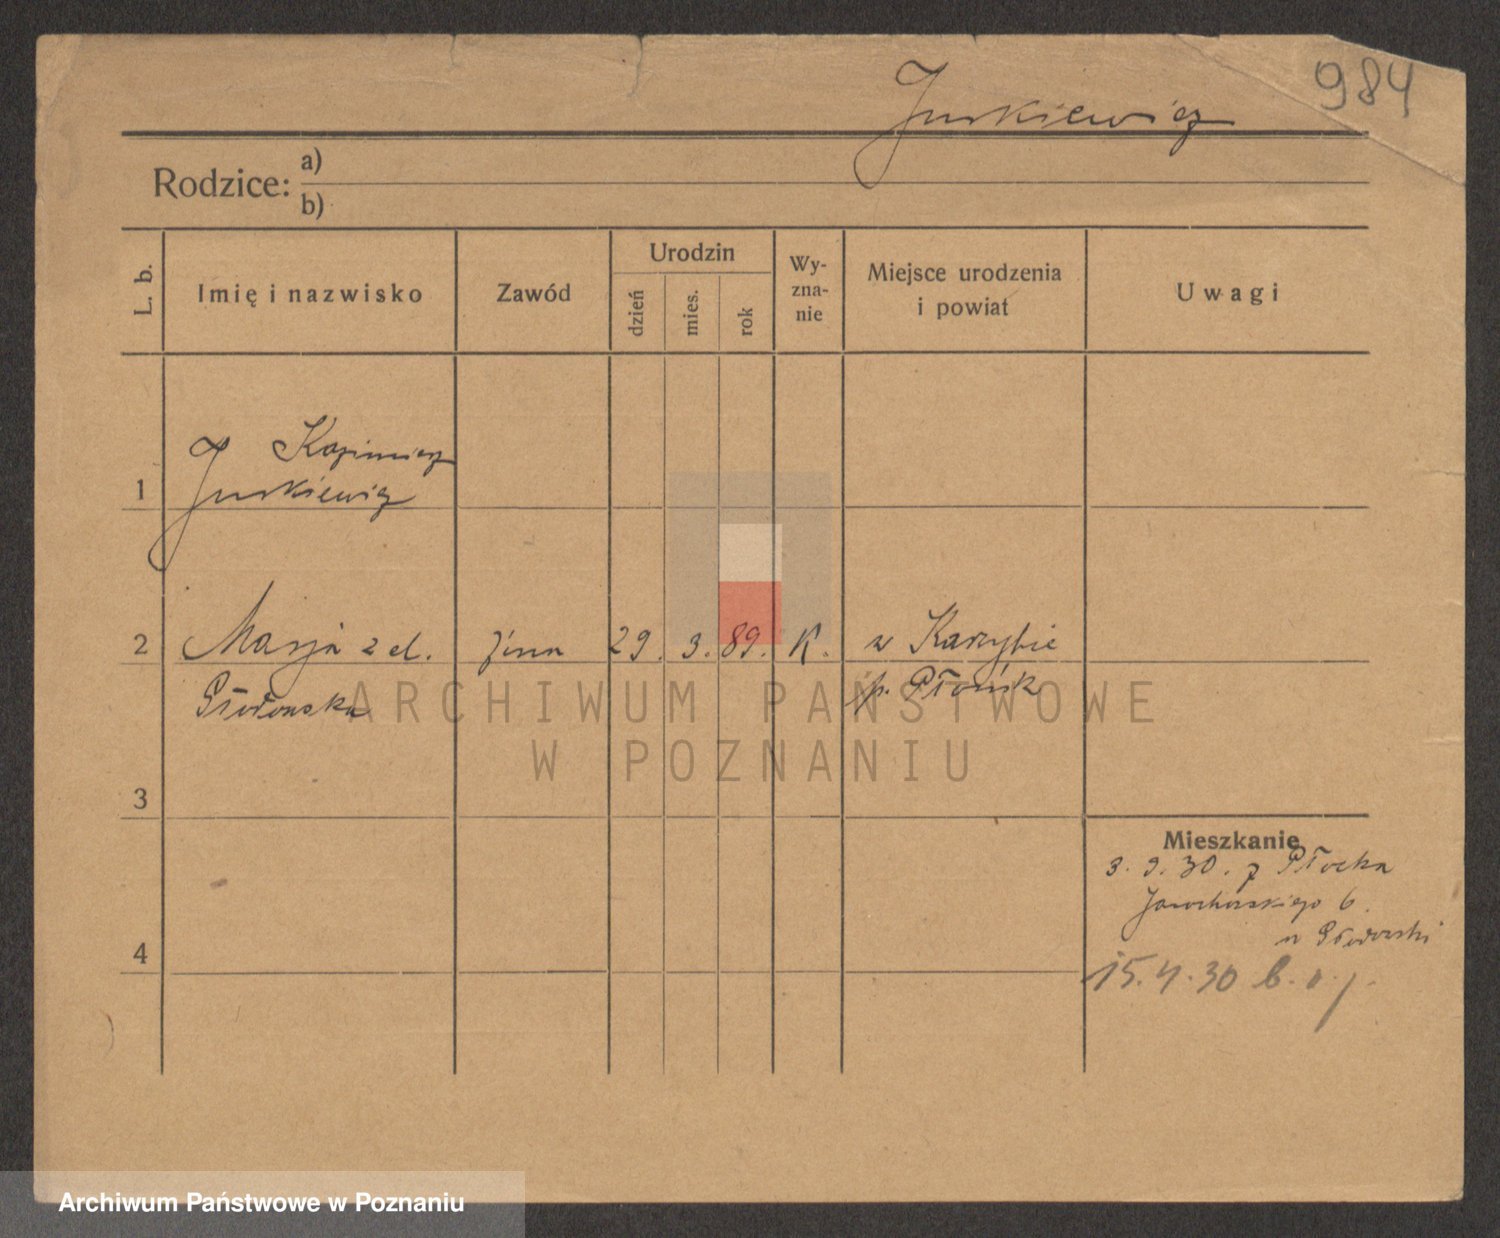 984
Juskiewicz
Rodzice:
a)
b)
L. b.
Imię i nazwisko
Zawód
Urodzin
dzień
mies.
rok
Wy-
zna-
nie
Miejsce urodzenia
i powiat
Uwagi
1
Kazimierz
Juskiewicz
2
Marja z d.
żona
29. 3. 89.
K.
w Karzybie
p. Płońsk
3
4
Mieszkanie
3. 9. 30. z Płocka
6.
15. 4. 30
ARCHIWUM PAŃSTWOWE
W POZNANIU
Archiwum Państwowe w Poznaniu